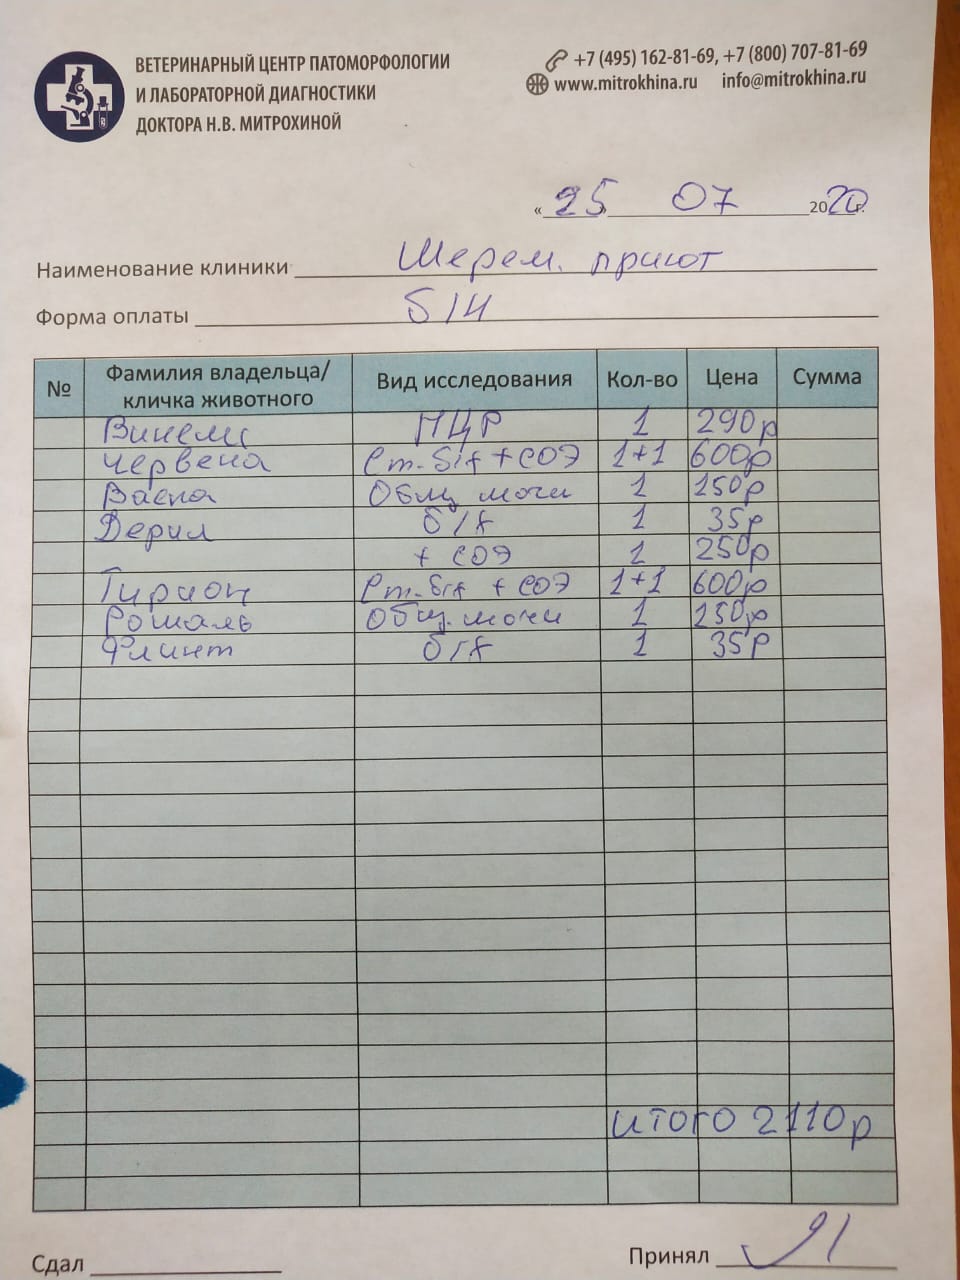 ВЕТЕРИНАРНЫЙ ЦЕНТР ПАТОМОРФОЛОГИИ
И ЛАБОРАТОРНОЙ ДИАГНОСТИКИ
ДОКТОРА Н.В. МИТРОХИНОЙ
+7 (495) 162-81-69, +7 (800) 707-81-69
www.mitrokhina.ru info@mitrokhina.ru
« 25 07 2020 г.
Наименование клиники Шерем. приют
Форма оплаты б/н
№ Фамилия владельца/ кличка животного Вид исследования Кол-во Цена Сумма
ПЦР 1 290р
Червена Ст. б/х + СОЭ 1+1 600р
Васка Общ мочи 1 150р
Дерил б/х 1 35р
+ СОЭ 1 250р
Тирион Ст. б/х + СОЭ 1+1 600р
Рошаль Общ. мочи 1 150р
Флинт б/х 1 35р
итого 2110р
Сдал Принял